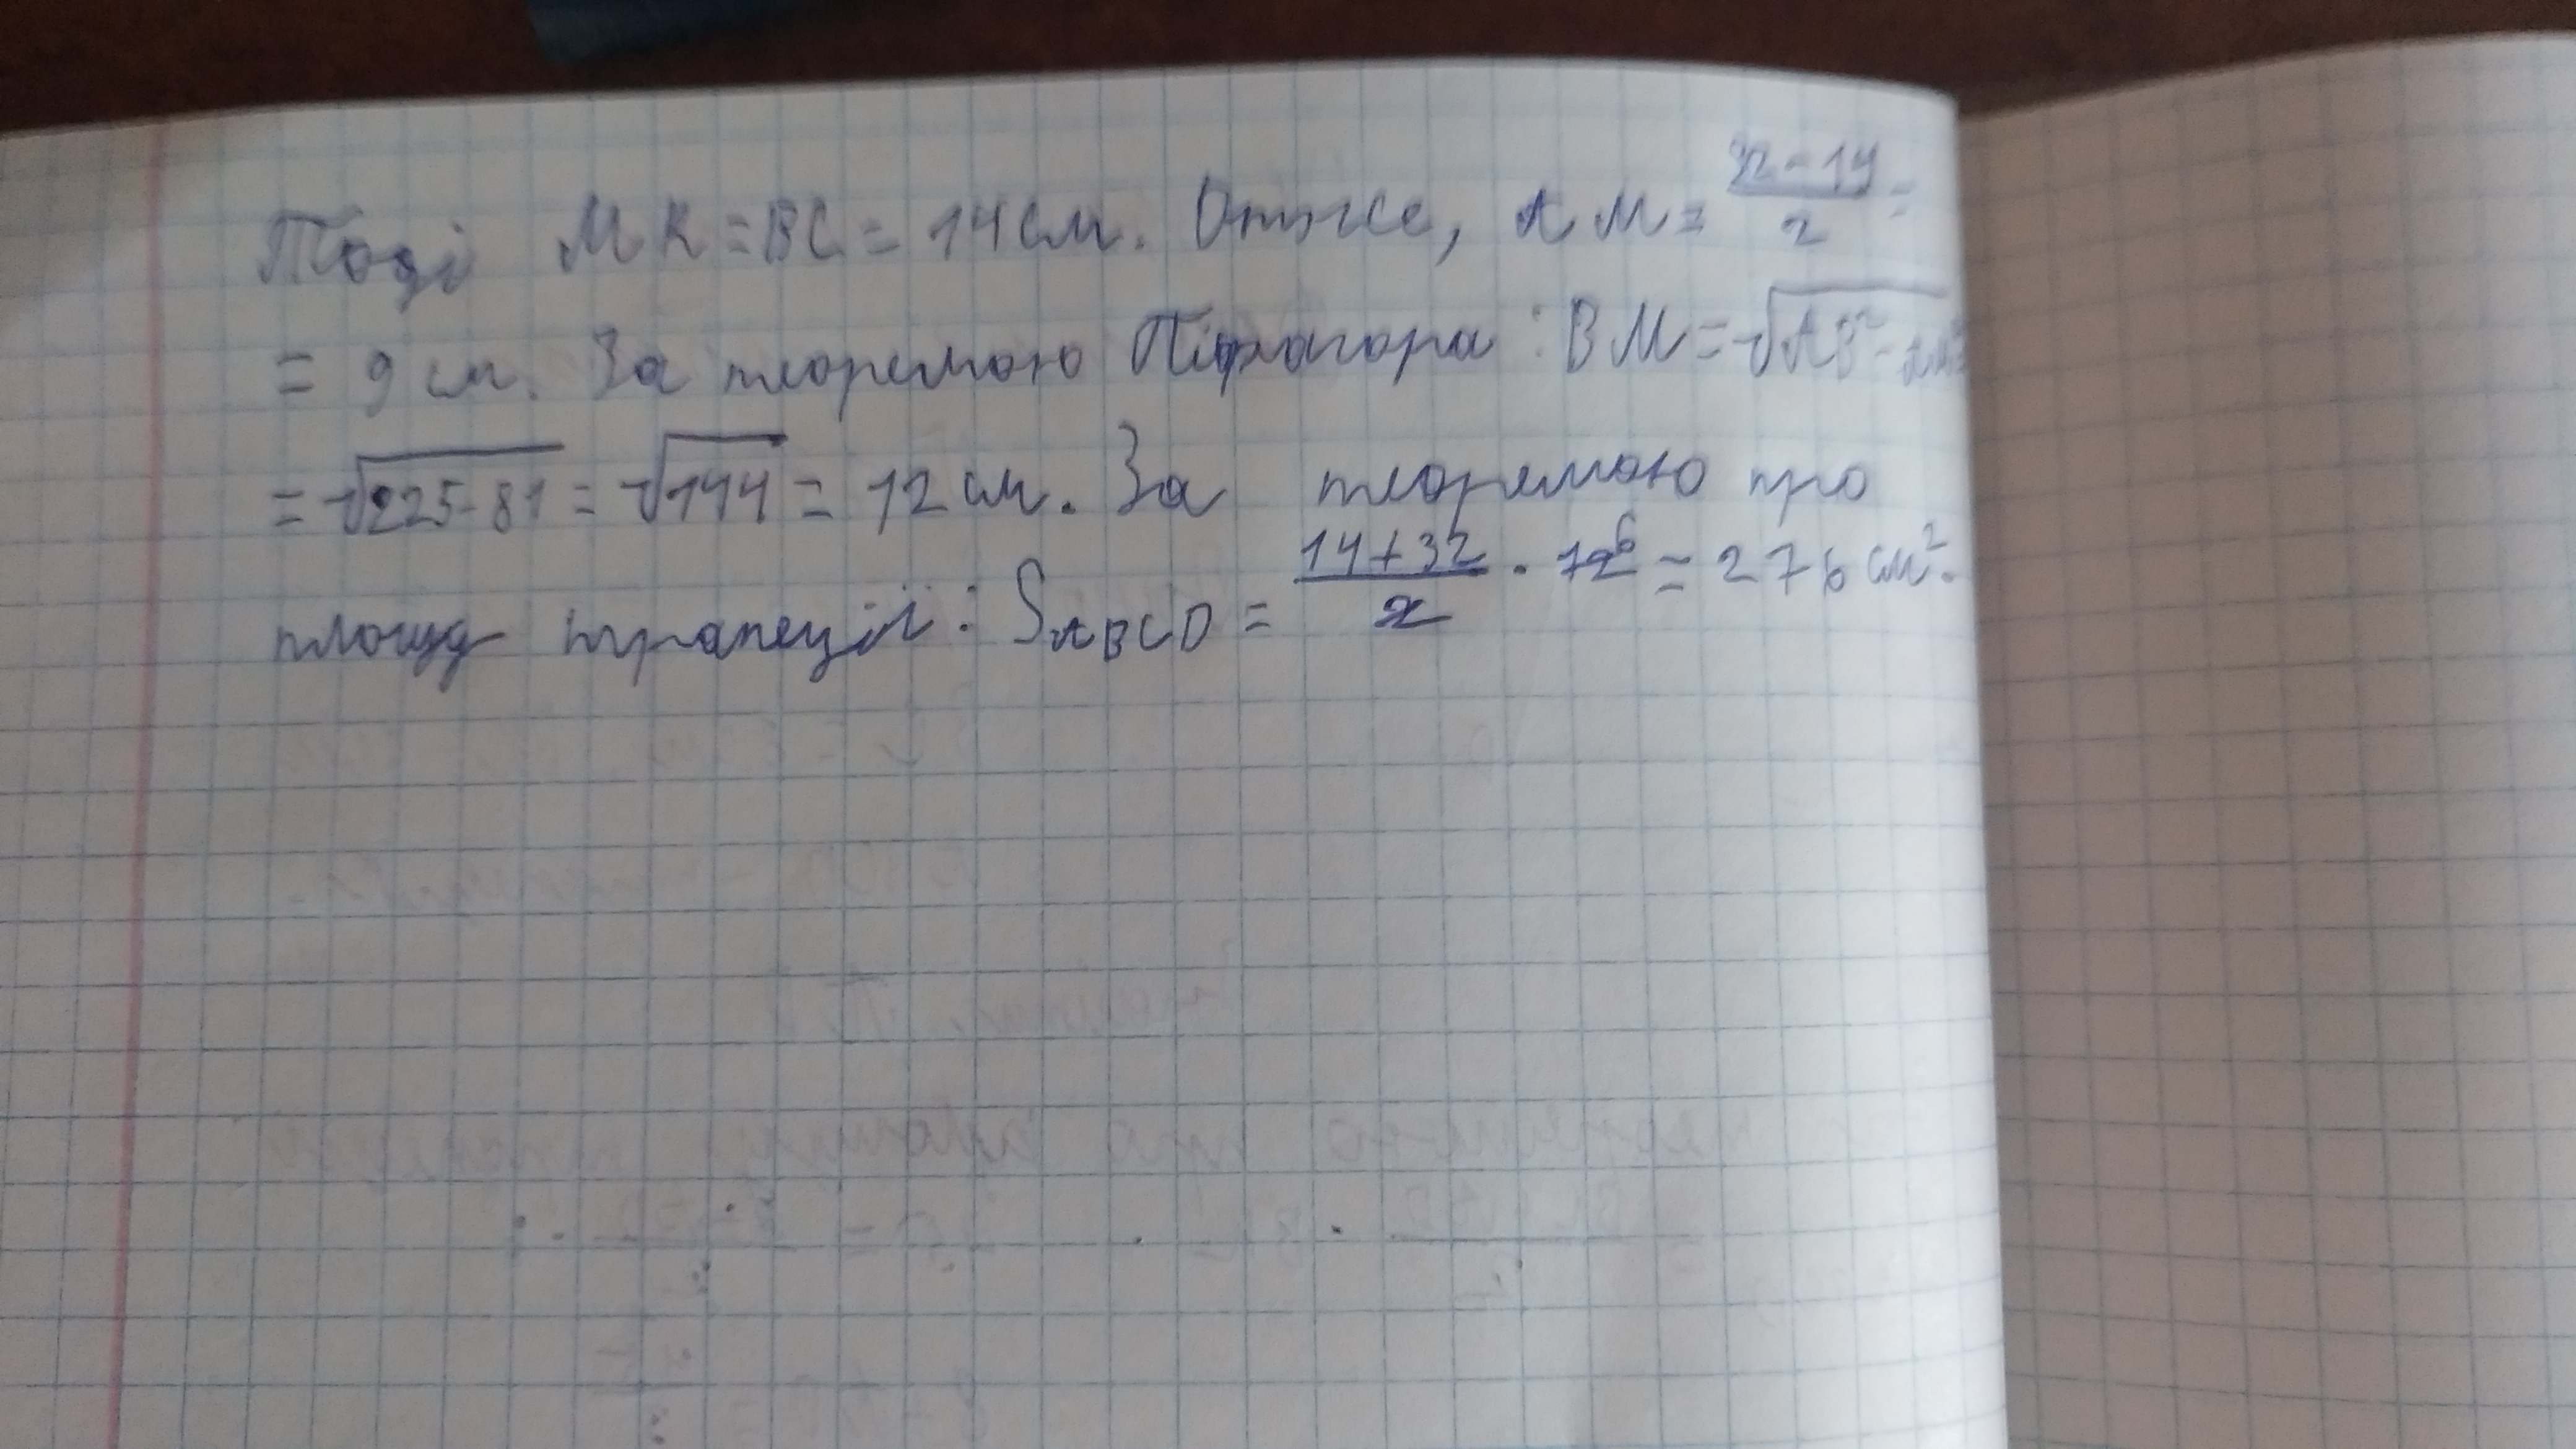 Тоді MK = BC = 14 см. Отже, AM = (32 - 14)/2 =
= 9 см. За теоремою Піфагора: BM = √(AB² - AM²)
= √(225-81) = √144 = 12 см. За теоремою про
площу трапеції: S_ABCD = (14+32)/2 · 12⁶ = 276 см².